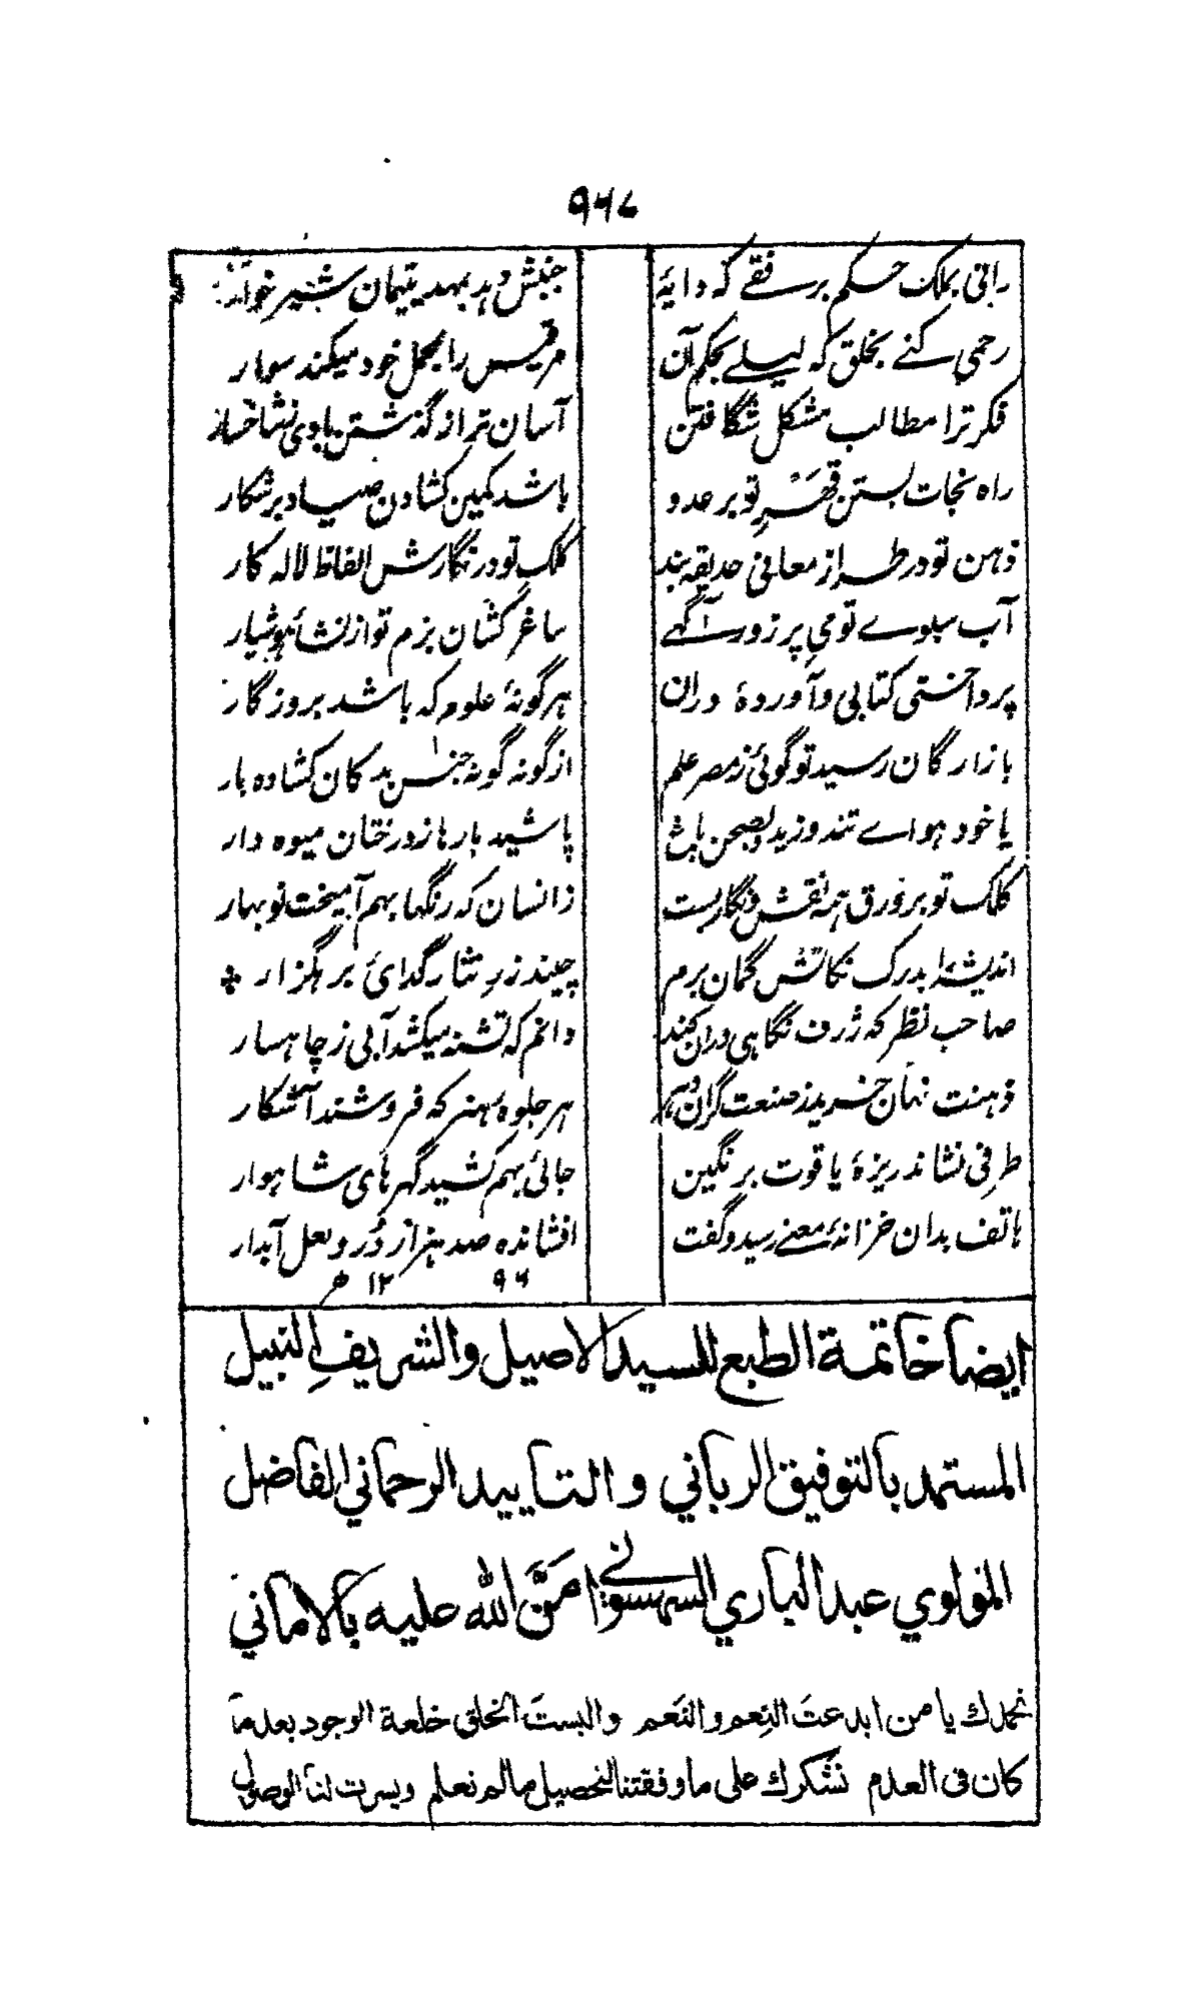 ۹۶۷
رانی بملک حکم برفقے که دایۂ	جنبش دهد بمهد یتیمان شیر خوار
رحمی کنے بخلق که لیلے بحکم آن	مر قیس را بمحمل خود میکند سوار
فکر ترا مطالب مشکل شگافتن	آسان تر از گذشتن بادی ز شاخسار
راه نجات بستن قهر تو بر عدو	باشد کمین کشادن صیاد بر شکار
ذهن تو در طراز معانی حدیقه بند	کلک تو در نگارش الفاظ لاله کار
آب سبوے تو می پرزور آگهے	ساغر کشان بزم تو از نشأ هوشیار
پرداختی کتابی و آوردۂ دران	هر گونۂ علوم که باشد بروزگار
بازارگان رسید تو گوئی ز مصر علم	از گونه گونه جنس بدکان کشاده بار
یا خود هواے تند وزید و بصحن باغ	پاشید بارها ز درختان میوه دار
کلک تو بر ورق همه نقش و نگار بست	زانسان که رنگها بهم آمیخت نوبهار
اندیشه را بدرک نکاتش گمان برم	چیند زر نثار گدائی برهگزار
صاحب نظر که ژرف نگاهی دران کند	دانم که تشنه میکشد آبی ز چاهسار
ذهنت نهان خرید ز صنعت گران دهر	هر جلوه هنر که فروشند آشکار
طرفی نشاند ریزۂ یاقوت بر نگین	جائی بهم کشید گهرهای شاهوار
هاتف بدان خزانۂ معنے رسید و گفت	افشانده صد هزار دُر و لعل آبدار
۱۲ ۹۶ ھ
ايضا خاتمة الطبع للسيد الاصيل والشريف النبيل
المستمد بالتوفيق الرباني والتاييد الرحماني الفاضل
المولوي عبد الباري السهسواني مَنَّ الله عليه بالاماني
نحمدك يا من ابدعت النِعم والنَعم والبست الخلق خلعة الوجود بعد ما
كان فى العدم نشكرك على ما وفقتنا لتحصيل ما لم نعلم ويسرت لنا الوصول